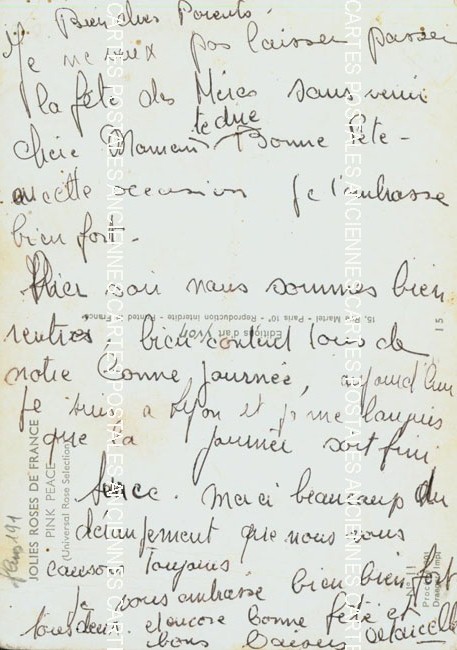 Bien chers Parents.
Je ne veux pas laisser passer
la fête des Mères sans venir
chère Maman te dire Bonne fête -
à cette occasion je t'embrasse
bien fort -
Hier soir nous sommes bien
rentrés, bien content tous de
notre bonne journée, aujourd'hui
je suis à Lyon et je me languis
que la journée soit fini
Merci beaucoup du
dérangement que nous vous
causons Toujours
je vous embrasse bien bien fort
tous deux encore bonne fête et
bons baisers Marcelle
JOLIES ROSES DE FRANCE
PINK PEACE
(Universal Rose Selection)
Editions d'art Yvon
15, Rue Martel - Paris 10e - Reproduction interdite - Printed in France
15
CARTES POSTALES ANCIENNES CARTES POSTALES ANCIENNES CARTES POSTALES ANCIENNES
CARTES POSTALES ANCIENNES CARTES POSTALES ANCIENNES CARTES POSTALES ANCIENNES